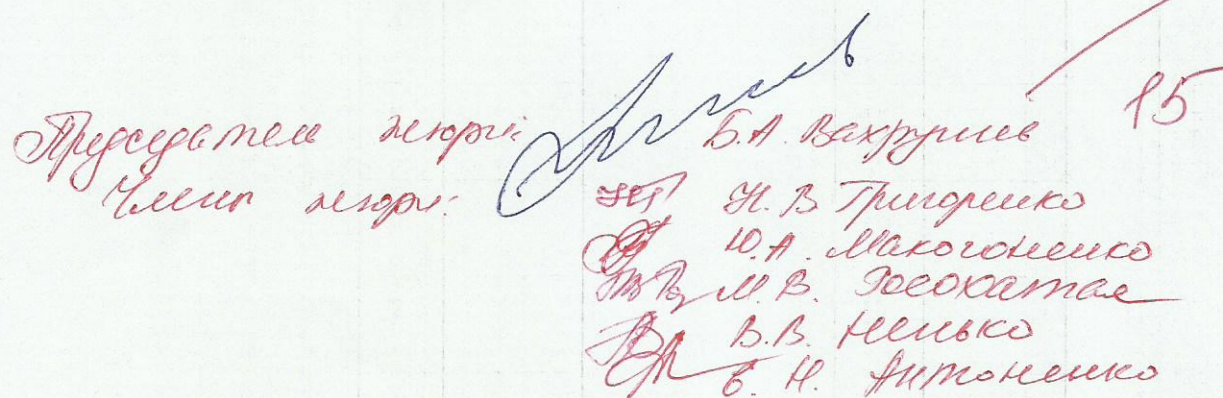 15
Председатель жюри: Б.А. Вахрушев
Члены жюри: Н.В Григоренко
Ю.А. Макогоненко
М.В.
В.В. Ненько
Е.Н. Антоненко